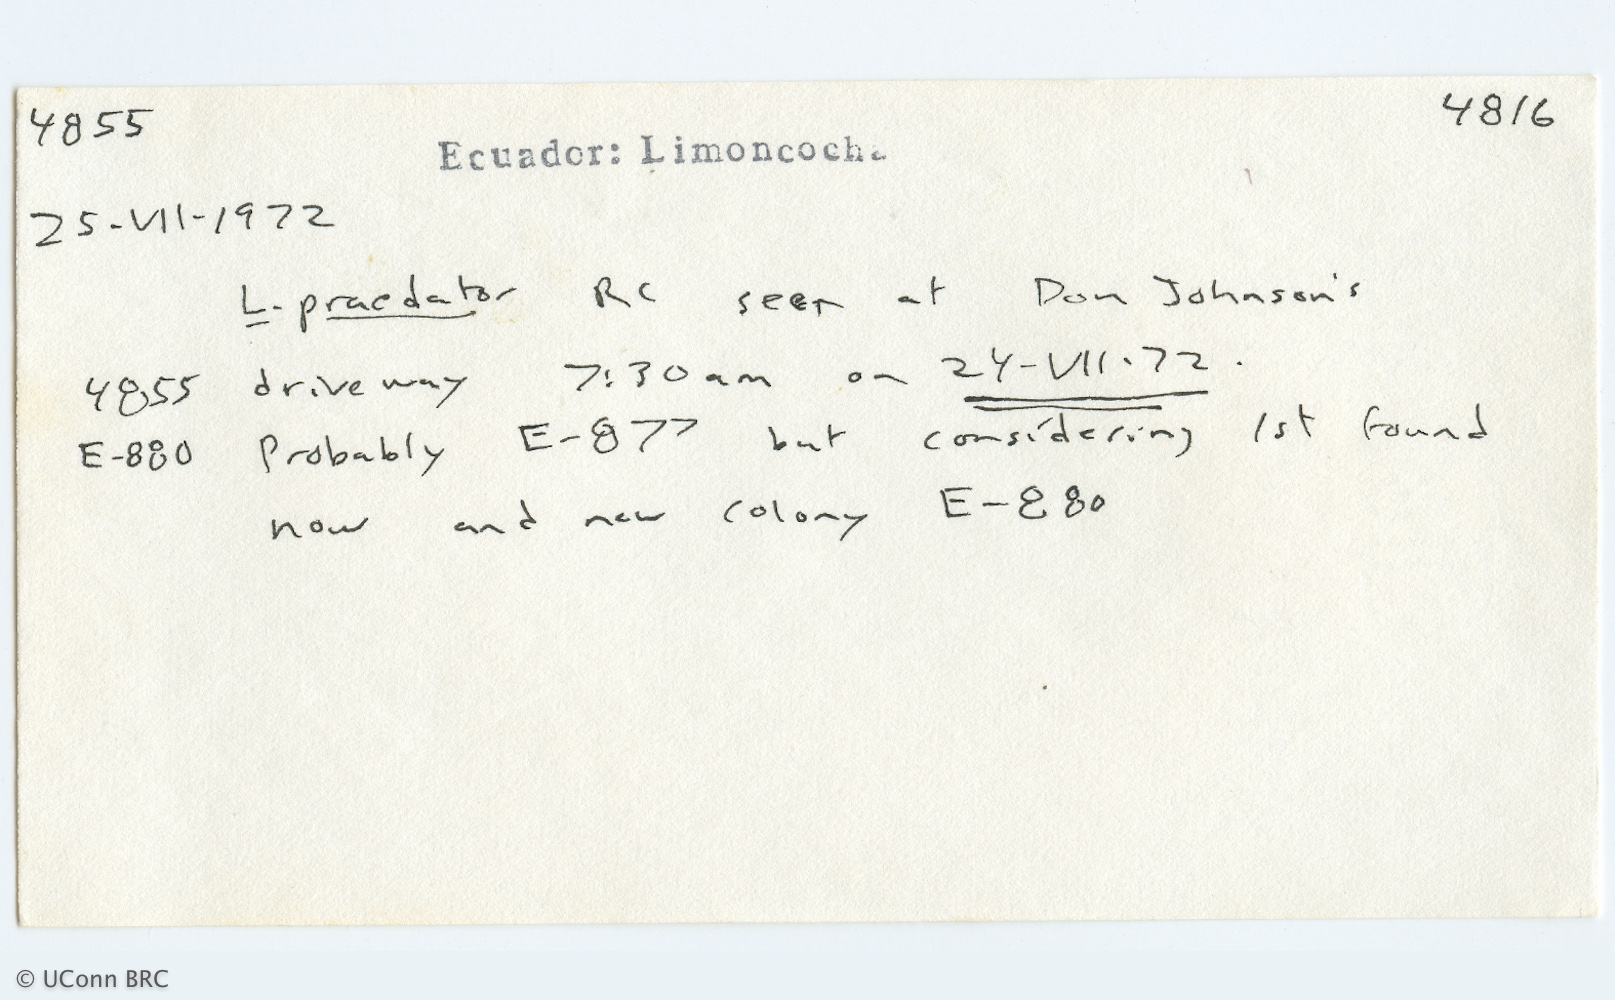 4855 4816
Ecuador: Limoncocha
25-VII-1972
L. praedator RC seen at Don Johnson's
4855 driveway 7:30am on 24-VII-72.
E-880 Probably E-877 but considering 1st found
now and new colony E-880
© UConn BRC